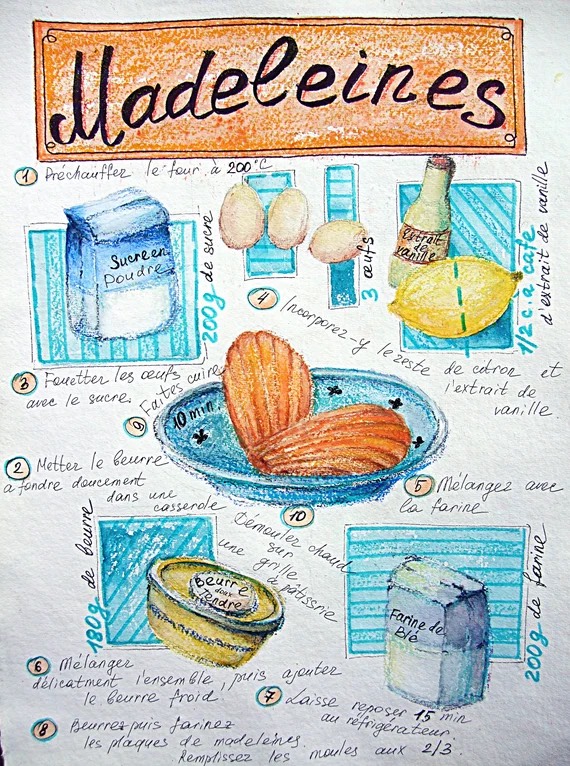 Madeleines
1 Préchauffez le four à 200°C
Sucre en
Poudre
200g de sucre
3 œufs
extrait
de
vanille
1/2 c. a café
d'extrait de vanille
4 Incorporez-y le zeste de citron et
l'extrait de
vanille.
3 Fouetter les œufs
avec le sucre.
9 Faites cuire
10 min
2 Metter le beurre
a fondre doucement
dans une
casserole
5 Mélangez avec
la farine
10
Démoulez chaud
sur
une grille
à pâtisserie
180g de beurre
Beurre
doux
Tendre
Farine de
Blé
200g de farine
6 Mélangez
délicatment l'ensemble, puis ajouter
le beurre froid.
7 Laisse reposer 15 min
au réfrigérateur.
8 Beurrez puis farinez
les plaques de madeleines.
Remplissez les moules aux 2/3.